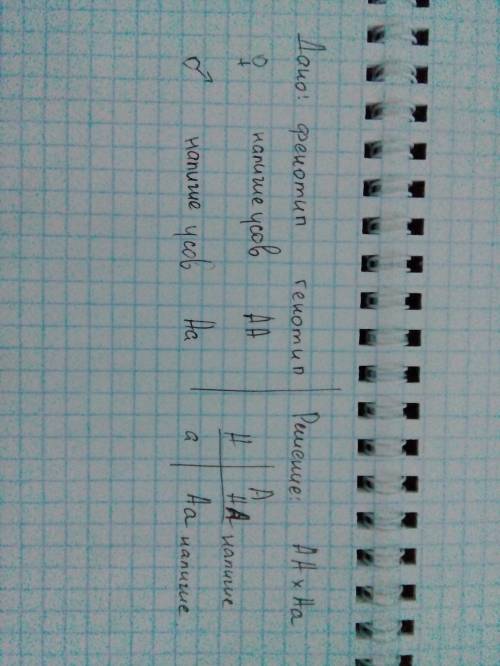 Дано: фенотип генотип Решение: АА х Аа
♀ наличие усов АА
♂ наличие усов Аа
А
А АА наличие
а Аа наличие